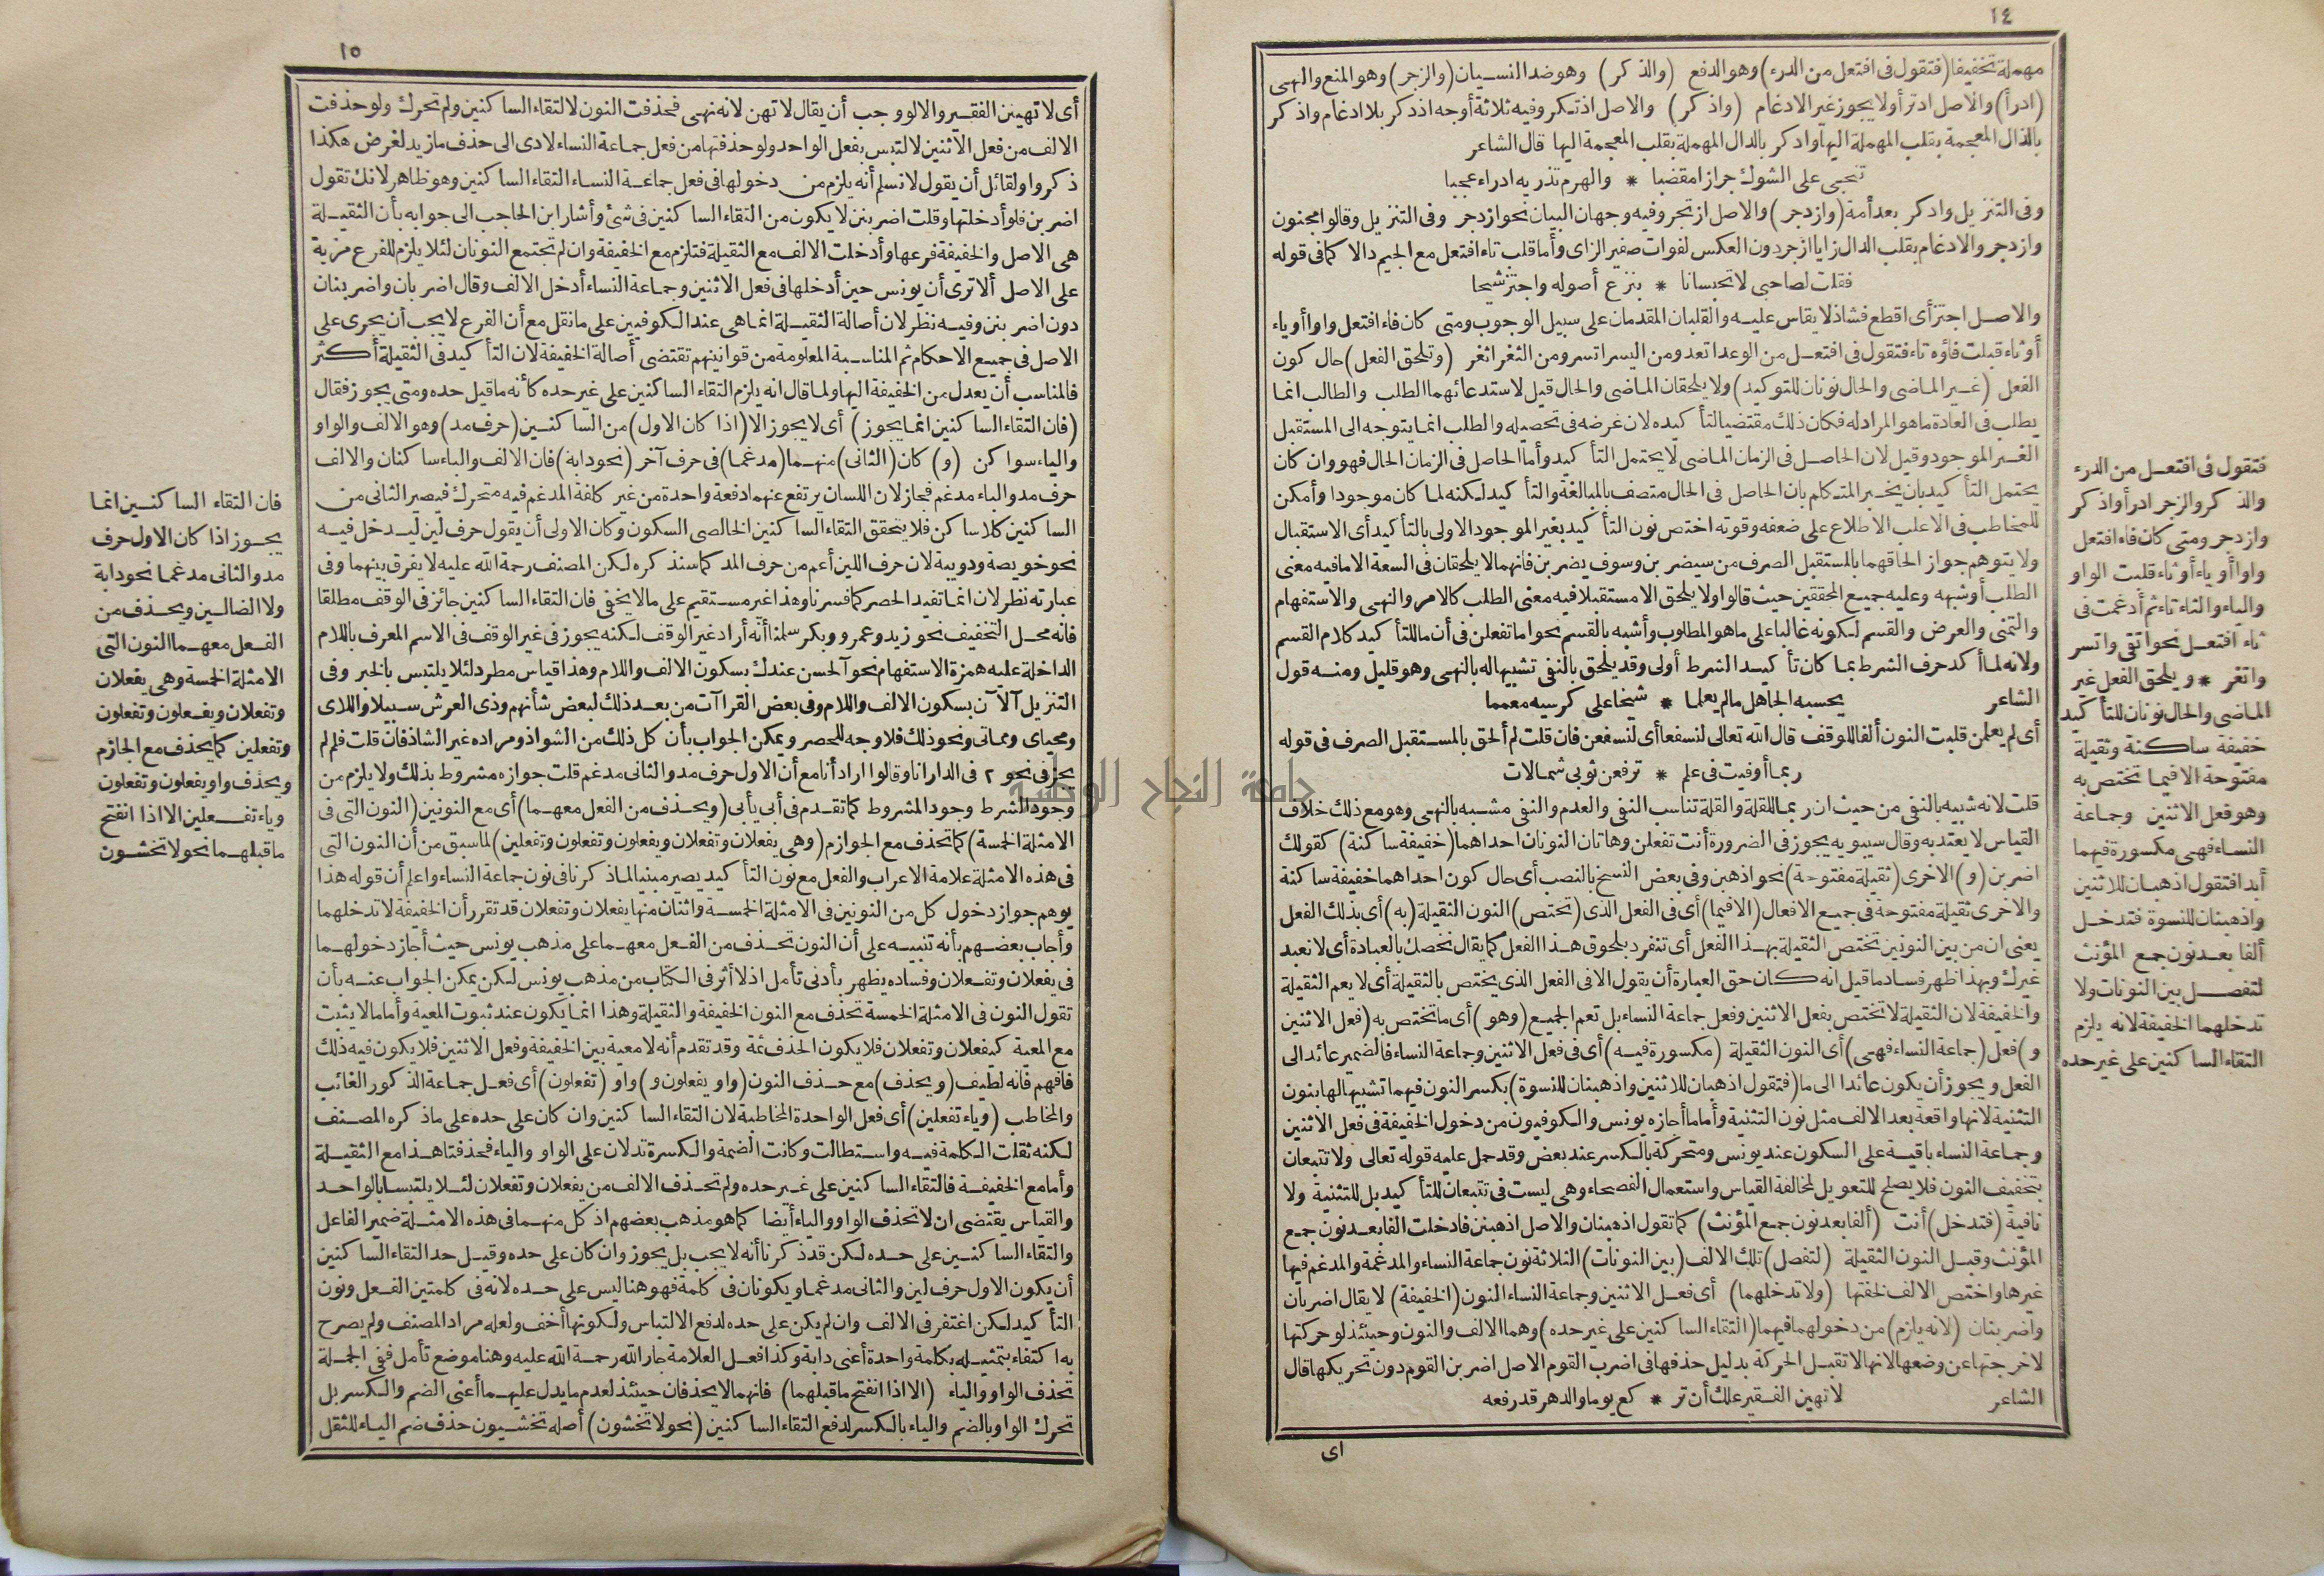 ١٤
مهملة تخفيفا (فتقول فى افتعل من الدرء) وهو الدفع (والذكر) وهو ضد النسيان (والزجر) وهو المنع والنهى
(ادرأ) والاصل ادترأ ولا يجوز غير الادغام (واذكر) والاصل اذتكر وفيه ثلاثة أوجه اذدكر بلا ادغام واذكر
بالذال المعجمة بقلب المهملة اليها وادكر بالدال المهملة بقلب المعجمة اليها قال الشاعر
تنحى على الشوك جرازا مقضبا * والهرم تذريه ادراء عجبا
وفى التنزيل وادكر بعد أمة (وازدجر) والاصل ازتجر وفيه وجهان البيان نحو ازدجر وفى التنزيل وقالوا مجنون
وازدجر والادغام بقلب الدال زايا ازجر دون العكس لفوات صفير الزاى وأما قلب تاء افتعل مع الجيم دالا كما فى قوله
فقلت لصاحبى لا تحبسانا * بنزع أصوله واجتز شيحا
والاصل اجتز أى اقطع فشاذ لا يقاس عليه والقلبان المقدمان على سبيل الوجوب ومتى كان فاء افتعل واوا أو ياء
أو ثاء قبلت فاؤه تاء فتقول فى افتعل من الوعد اتعد ومن اليسر اتسر ومن الثغر اثغر (وتلحق الفعل) حال كون
الفعل (غير الماضى والحال نونان للتوكيد) ولا يلحقان الماضى والحال قيل لاستدعائهما الطلب والطالب انما
يطلب فى العادة ما هو المراد له فكان ذلك مقتضيا لتأكيده لان غرضه فى تحصيله والطلب انما يتوجه الى المستقبل
الغير الموجود وقيل لان الحاصل فى الزمان الماضى لا يحتمل التأكيد وأما الحاصل فى الزمان الحال فهو وان كان
يحتمل التأكيد بان يخبر المتكلم بان الحاصل فى الحال متصف بالمبالغة والتأكيد لكنه لما كان موجودا وأمكن
للمخاطب فى الاغلب الاطلاع على ضعفه وقوته اختص نون التأكيد بغير الموجود الاولى بالتأكيد أى الاستقبال
ولا يتوهم جواز الحاقهما بالمستقبل الصرف من سيضربن وسوف يضربن فانهما لا يلحقان فى السعة الا ما فيه معنى
الطلب أو شبهه وعليه جميع المحققين حيث قالوا ولا يلحق الا مستقبلا فيه معنى الطلب كالامر والنهى والاستفهام
والتمنى والعرض والقسم لكونه غالبا على ما هو المطلوب وأشبه بالقسم نحو اما تفعلن فى أن ما للتأكيد كلام القسم
ولانه لما أكد حرف الشرط بما كان تأكيد الشرط أولى وقد يلحق بالنفى تشبيها له بالنهى وهو قليل ومنه قول
الشاعر يحسبه الجاهل ما لم يعلما * شيخا على كرسيه معمما
أى لم يعلمن قلبت النون ألفا للوقف قال الله تعالى لنسفعا أى لنسفعن فان قلت لم ألحق بالمستقبل الصرف فى قوله
ربما أوفيت فى علم * ترفعن ثوبى شمالات
قلت لانه شبيه بالنفى من حيث ان ربما للقلة والقلة تناسب النفى والعدم والنفى مشبه بالنهى وهو مع ذلك خلاف
القياس لا يعتد به وقال سيبويه يجوز فى الضرورة أنت تفعلن وهاتان النونان احداهما (خفيفة ساكنة) كقولك
اضربن (و) الاخرى (ثقيلة مفتوحة) نحو اذهبن وفى بعض النسخ بالنصب أى حال كون احداهما خفيفة ساكنة
والاخرى ثقيلة مفتوحة فى جميع الافعال (الا فيما) أى فى الفعل الذى (تختص) النون الثقيلة (به) أى بذلك الفعل
يعنى ان من بين النونين تختص الثقيلة بهذا الفعل أى تنفرد بلحوق هذا الفعل كما يقال نخصك بالعبادة أى لا نعبد
غيرك وبهذا ظهر فساد ما قيل انه كان حق العبارة أن يقول الا فى الفعل الذى يختص بالثقيلة أى لا يعم الثقيلة
والخفيفة لان الثقيلة لا تختص بفعل الاثنين وفعل جماعة النساء بل تعم الجميع (وهو) أى ما تختص به (فعل الاثنين
و) فعل (جماعة النساء فهى) أى النون الثقيلة (مكسورة فيه) أى فى فعل الاثنين وجماعة النساء فالضمير عائد الى
الفعل ويجوز أن يكون عائدا الى ما (فتقول اذهبان للاثنين واذهبنان للنسوة) بكسر النون فيهما تشبيها لها بنون
التثنية لانها واقعة بعد الالف مثل نون التثنية وأما ما أجازه يونس والكوفيون من دخول الخفيفة فى فعل الاثنين
وجماعة النساء باقية على السكون عند يونس ومتحركة بالكسر عند بعض وقد حمل عليه قوله تعالى ولا تتبعان
بتخفيف النون فلا يصلح للتعويل لمخالفة القياس واستعمال الفصحاء وهى ليست فى تتبعان للتأكيد بل للتثنية ولا
نافية (فتدخل) أنت (ألفا بعد نون جمع المؤنث) كما تقول اذهبنان والاصل اذهبنن فادخلت الفا بعد نون جمع
المؤنث وقبل النون الثقيلة (لتفصل) تلك الالف (بين النونات) الثلاثة نون جماعة النساء والمدغمة والمدغم فيها
غيرها واختص الالف لخفتها (ولا تدخلهما) أى فعل الاثنين وجماعة النساء النون (الخفيفة) لا يقال اضربان
واضربنان (لانه يلزم) من دخولهما فيهما (التقاء الساكنين على غير حده) وهما الالف والنون وحينئذ لو حركتها
لاخرجتها عن وضعها لانها لا تقبل الحركة بدليل حذفها فى اضرب القوم الاصل اضربن القوم دون تحريكها قال
الشاعر لا تهين الفقير علك أن تر * كع يوما والدهر قد رفعه
اى
فتقول فى افتعل من الدرء
والذكر والزجر ادرأ واذكر
وازدجر ومتى كان فاء افتعل
واوا أو ياء أو ثاء قلبت الواو
والياء والثاء تاء ثم أدغمت فى
تاء افتعل نحو اتقى واتسر
واتغر * ويلحق الفعل غير
الماضى والحال نونان للتأكيد
خفيفة ساكنة وثقيلة
مفتوحة الا فيما تختص به
وهو فعل الاثنين وجماعة
النساء فهى مكسورة فيهما
أبدا فتقول اذهبان للاثنين
واذهبنان للنسوة فتدخل
ألفا بعد نون جمع المؤنث
لتفصل بين النونات ولا
تدخلهما الخفيفة لانه يلزم
التقاء الساكنين على غير حده
١٥
أى لا تهينن الفقير والا لوجب أن يقال لا تهن لانه نهى فحذفت النون لالتقاء الساكنين ولم تحرك ولو حذفت
الالف من فعل الاثنين لالتبس بفعل الواحد ولو حذفتها من فعل جماعة النساء لادى الى حذف ما زيد لغرض هكذا
ذكروا ولقائل أن يقول لا نسلم أنه يلزم من دخولها فى فعل جماعة النساء التقاء الساكنين وهو ظاهر لانك تقول
اضربن فلو أدخلتها وقلت اضربنن لا يكون من التقاء الساكنين فى شئ وأشار ابن الحاجب الى جوابه بأن الثقيلة
هى الاصل والخفيفة فرعها وأدخلت الالف مع الثقيلة فتلزم مع الخفيفة وان لم تجتمع النونان لئلا يلزم للفرع مزية
على الاصل ألا ترى أن يونس حين أدخلها فى فعل الاثنين وجماعة النساء أدخل الالف وقال اضربان واضربنان
دون اضربنن وفيه نظر لان أصالة الثقيلة انما هى عند الكوفيين على ما نقل مع أن الفرع لا يجب أن يجرى على
الاصل فى جميع الاحكام ثم المناسبة المعلومة من قوانينهم تقتضى أصالة الخفيفة لان التأكيد فى الثقيلة أكثر
فالمناسب أن يعدل من الخفيفة اليها ولما قال انه يلزم التقاء الساكنين على غير حده كأنه ما قيل حده ومتى يجوز فقال
(فان التقاء الساكنين انما يجوز) أى لا يجوز الا (اذا كان الاول) من الساكنين (حرف مد) وهو الالف والواو
والياء سواكن (و) كان (الثانى) منهما (مدغما) فى حرف آخر (نحو دابة) فان الالف والباء ساكنان والالف
حرف مد والباء مدغم فجاز لان اللسان يرتفع عنهما دفعة واحدة من غير كلفة المدغم فيه متحرك فيصير الثانى من
الساكنين كلا ساكن فلا يتحقق التقاء الساكنين الخالصى السكون وكان الاولى أن يقول حرف لين ليدخل فيه
نحو خويصة ودويبة لان حرف اللين أعم من حرف المد كما سنذكره لكن المصنف رحمة الله عليه لا يفرق بينهما وفى
عبارته نظر لان انما تفيد الحصر كما فسرنا وهذا غير مستقيم على ما لا يخفى فان التقاء الساكنين جائز فى الوقف مطلقا
فانه محل التخفيف نحو زيد وعمرو وبكر سلمنا أنه أراد غير الوقف لكنه يجوز فى غير الوقف فى الاسم المعرف باللام
الداخلة عليه همزة الاستفهام نحو آلحسن عندك بسكون الالف واللام وهذا قياس مطرد لئلا يلتبس بالخبر وفى
التنزيل آلآن بسكون الالف واللام وفى بعض القراآت من بعد ذلك لبعض شأنهم وذى العرش سبيلا واللاى
ومحياى ومماتى ونحو ذلك فلا وجه للحصر ويمكن الجواب بأن كل ذلك من الشواذ ومراده غير الشاذ فان قلت فلم لم
يجز فى نحو ٢ فى الدار انا وقالوا ادارأنا مع أن الاول حرف مد والثانى مدغم قلت جوازه مشروط بذلك ولا يلزم من
وجود الشرط وجود المشروط كما تقدم فى أبى يأبى (ويحذف من الفعل معهما) أى مع النونين (النون التى فى
الامثلة الخمسة) كما تحذف مع الجوازم (وهى يفعلان وتفعلان ويفعلون وتفعلون وتفعلين) لما سبق من أن النون التى
فى هذه الامثلة علامة الاعراب والفعل مع نون التأكيد يصير مبنيا لما ذكرنا فى نون جماعة النساء واعلم أن قوله هذا
يوهم جواز دخول كل من النونين فى الامثلة الخمسة واثنان منها يفعلان وتفعلان قد تقرر أن الخفيفة لا تدخلهما
وأجاب بعضهم بأنه تنبيه على أن النون تحذف من الفعل معهما على مذهب يونس حيث أجاز دخولهما
فى يفعلان وتفعلان وفساده يظهر بأدنى تأمل اذ لا أثر فى الكتاب من مذهب يونس لكن يمكن الجواب عنه بأن
تقول النون فى الامثلة الخمسة تحذف مع النون الخفيفة والثقيلة وهذا انما يكون عند ثبوت المعية وأما ما لا يثبت
مع المعية كيفعلان وتفعلان فلا يكون الحذف ثمة وقد تقدم أنه لا معية بين الخفيفة وفعل الاثنين فلا يكون فيه ذلك
فافهم فانه لطيف (ويحذف) مع حذف النون (واو يفعلون و) واو (تفعلون) أى فعل جماعة الذكور الغائب
والمخاطب (وياء تفعلين) أى فعل الواحدة المخاطبة لان التقاء الساكنين وان كان على حده على ما ذكره المصنف
لكنه ثقلت الكلمة فيه واستطالت وكانت الضمة والكسرة تدلان على الواو والياء فحذفتا هذا مع الثقيلة
وأما مع الخفيفة فالتقاء الساكنين على غير حده ولم تحذف الالف من يفعلان وتفعلان لئلا يلتبسا بالواحد
والقياس يقتضى ان لا تحذف الواو والياء أيضا كما هو مذهب بعضهم اذ كل منهما فى هذه الامثلة ضمير الفاعل
والتقاء الساكنين على حده لكن قد ذكرنا أنه لا يجب بل يجوز وان كان على حده وقيل حد التقاء الساكنين
أن يكون الاول حرف لين والثانى مدغما ويكونان فى كلمة فهو هنا ليس على حده لانه فى كلمتين الفعل ونون
التأكيد لكن اغتفر فى الالف وان لم يكن على حده لدفع الالتباس ولكونها أخف ولعله مراد المصنف ولم يصرح
به اكتفاء بتمثيله بكلمة واحدة أعنى دابة وكذا فعل العلامة جار الله رحمة الله عليه وهنا موضع تأمل ففى الجملة
تحذف الواو والياء (الا اذا انفتح ما قبلهما) فانهما لا يحذفان حينئذ لعدم ما يدل عليهما أعنى الضم والكسر بل
تحرك الواو بالضم والياء بالكسر لدفع التقاء الساكنين (نحو لا تخشون) أصله تخشيون حذف ضم الياء للثقل
فان التقاء الساكنين انما
يجوز اذا كان الاول حرف
مد والثانى مدغما نحو دابة
ولا الضالين ويحذف من
الفعل معهما النون التى
الامثلة الخمسة وهى يفعلان
وتفعلان ويفعلون وتفعلون
وتفعلين كما يحذف مع الجازم
ويحذف واو يفعلون وتفعلون
وياء تفعلين الا اذا انفتح
ما قبلهما نحو لا تخشون
جامعة النجاح الوطنية